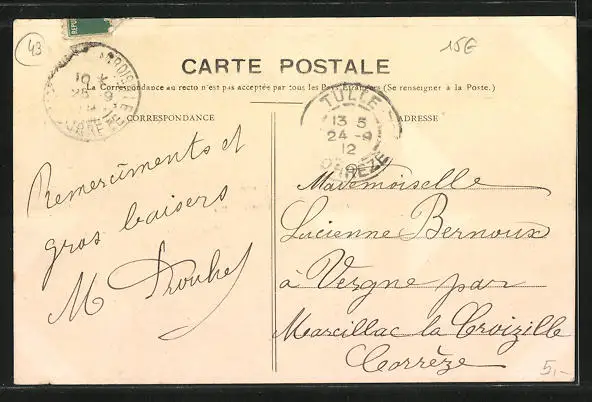 43
15€
CARTE POSTALE
La Correspondance au recto n'est pas acceptée par tous les Pays Étrangers (Se renseigner à la Poste.)
CORRESPONDANCE
ADRESSE
TULLE
13 5
24 - 9
12
CORRÈZE
Remerciments et
gros baisers
M
Mademoiselle
Lucienne Bernoux
à Vergne par
Marcillac la Croizille
Corrèze
5,-